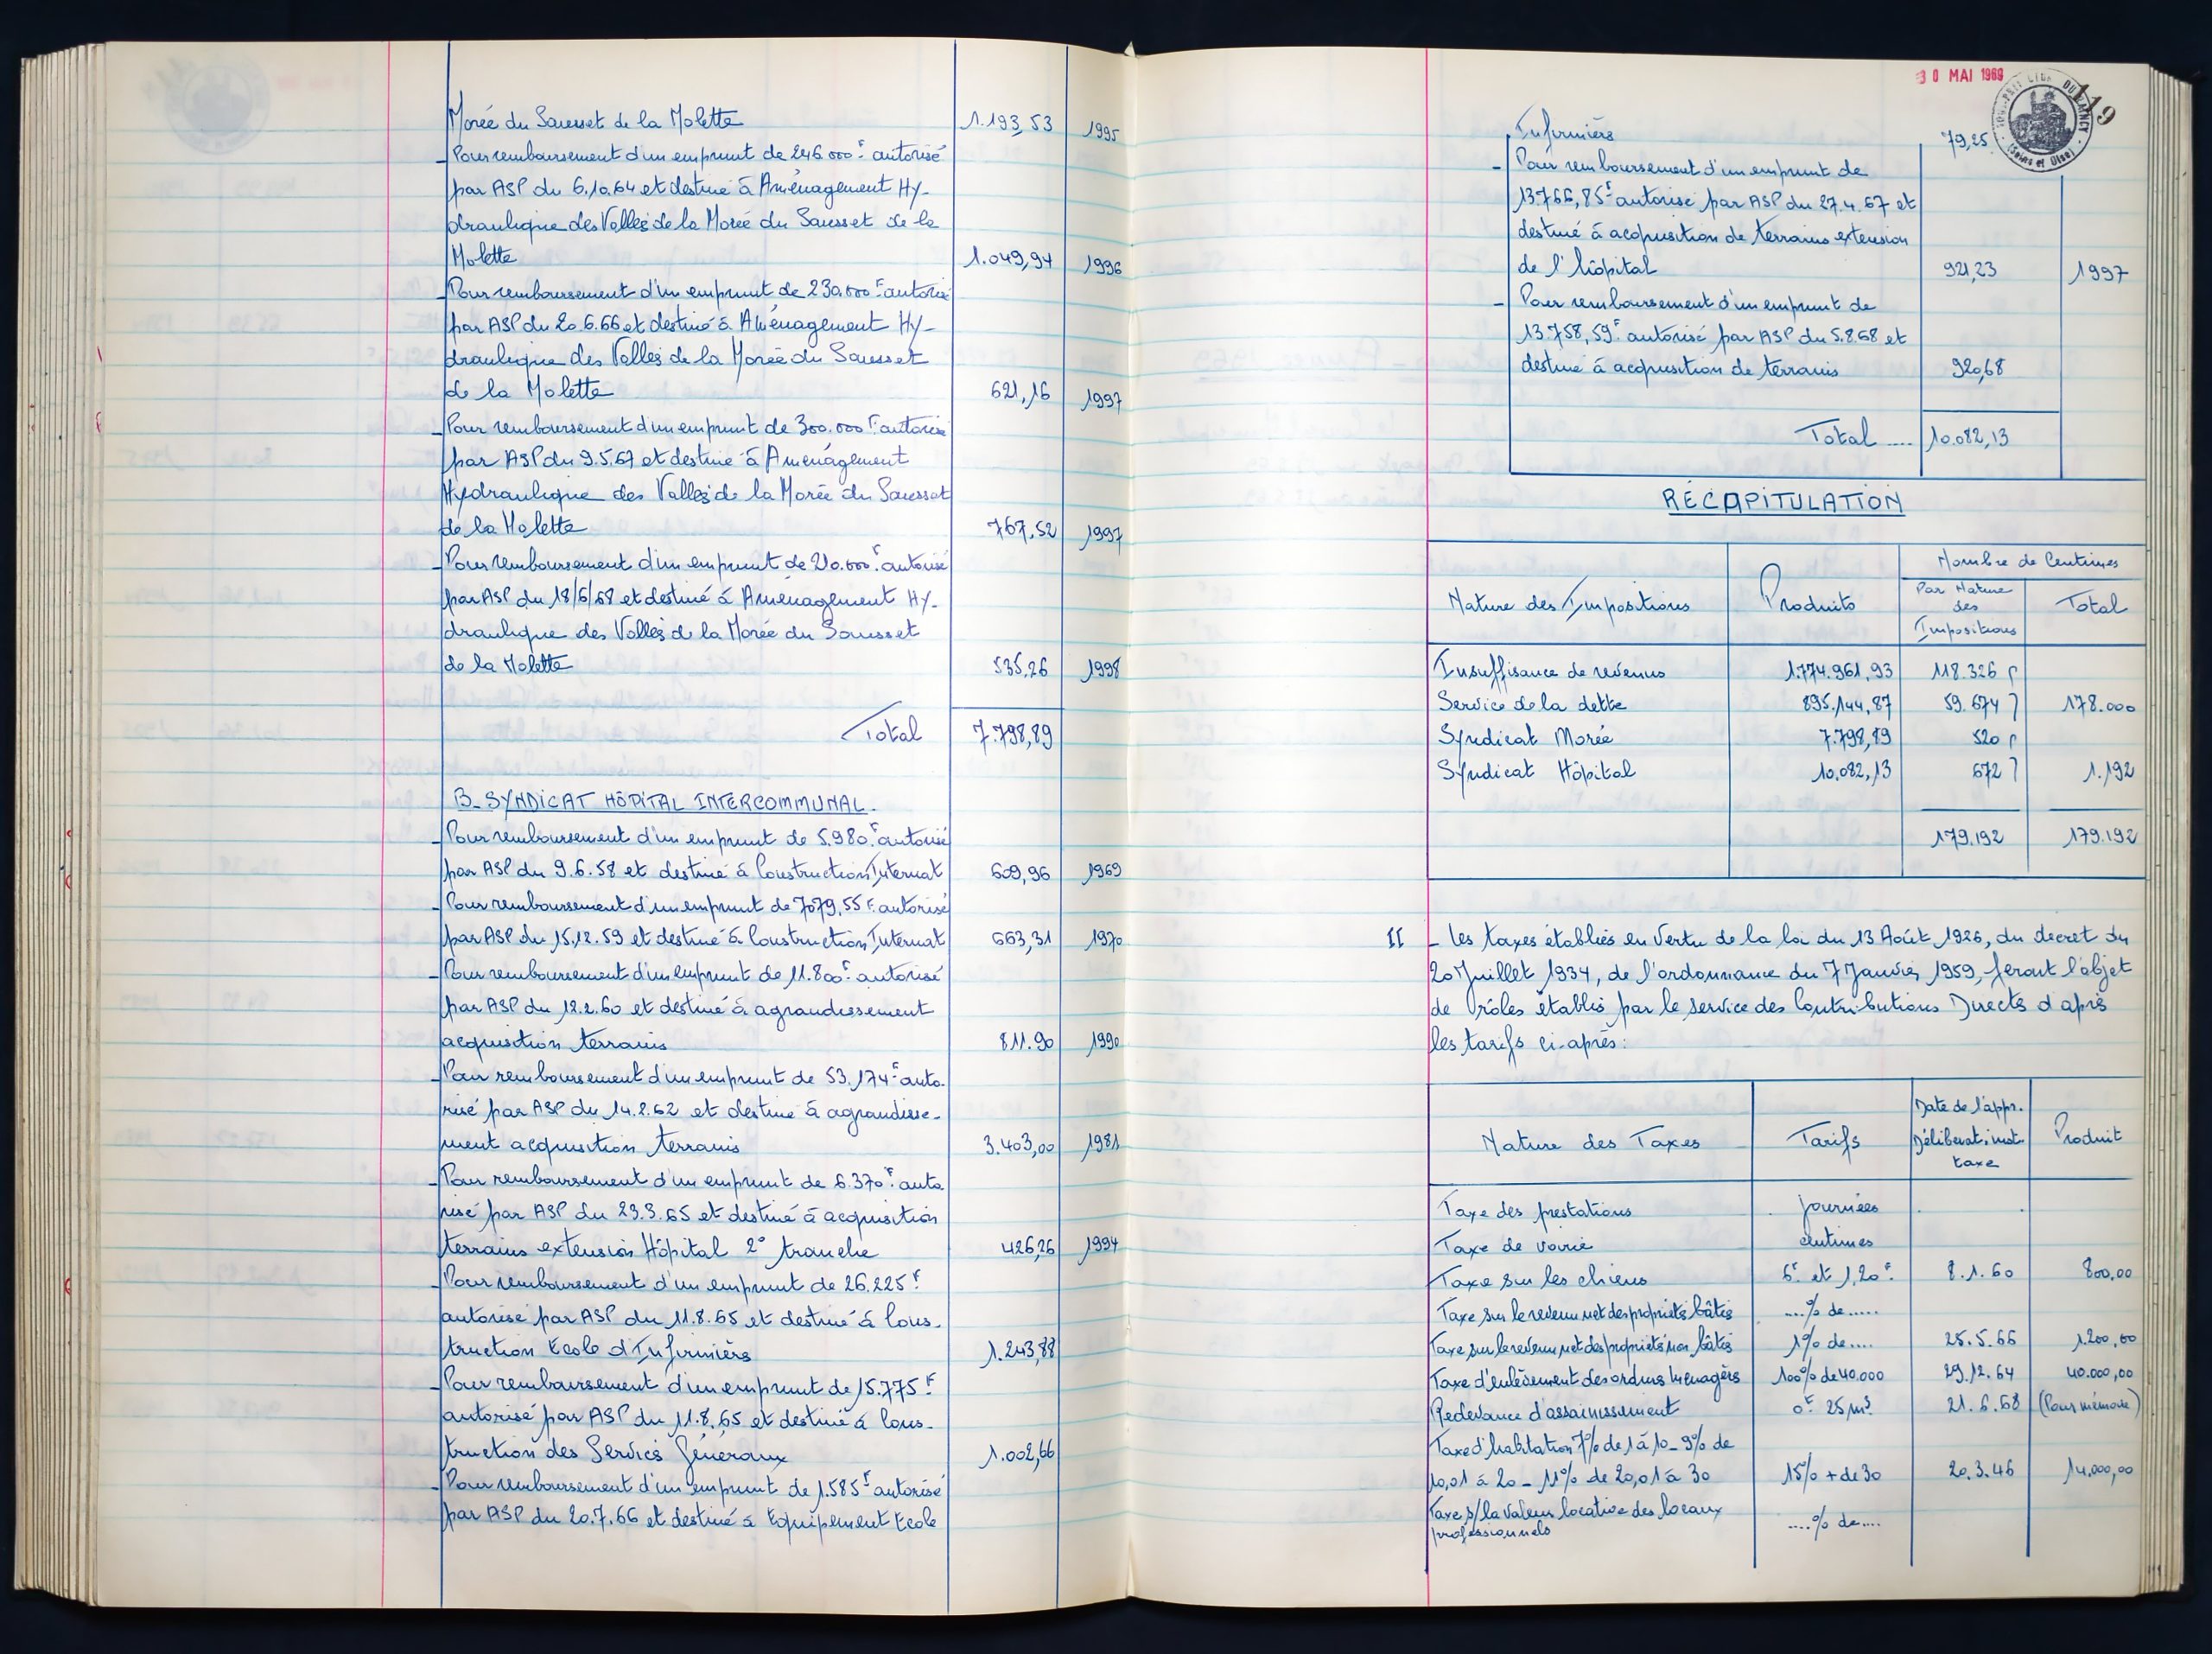 Morée du Sausset de la Molette 1.193,53 1995
- Pour remboursement d'un emprunt de 246.000F autorisé
par ASP du 6.10.64 et destiné à Aménagement Hy-
draulique des Vallées de la Morée du Sausset de la
Molette 1.049,94 1996
- Pour remboursement d'un emprunt de 230.000F autorisé
par ASP du 20.6.66 et destiné à Aménagement Hy-
draulique des Vallées de la Morée du Sausset
de la Molette 621,16 1997
- Pour remboursement d'un emprunt de 300.000F autorisé
par ASP du 9.5.67 et destiné à Aménagement
Hydraulique des Vallées de la Morée du Sausset
de la Molette 767,52 1997
- Pour remboursement d'un emprunt de 210.000F autorisé
par ASP du 18/6/68 et destiné à Aménagement Hy-
draulique des Vallées de la Morée du Sausset
de la Molette 535,26 1998
Total 7.798,89
B- SYNDICAT HÔPITAL INTERCOMMUNAL.
- Pour remboursement d'un emprunt de 5.980F autorisé
par ASP du 9.6.58 et destiné à Construction Internat 609,96 1969
- Pour remboursement d'un emprunt de 7079,55F autorisé
par ASP du 15.12.59 et destiné à Construction Internat 663,31 1970
- Pour remboursement d'un emprunt de 11.800F autorisé
par ASP du 12.2.60 et destiné à agrandissement
acquisition terrains 811.90 1990
- Pour remboursement d'un emprunt de 53.174F auto-
risé par ASP du 14.2.62 et destiné à agrandisse-
ment acquisition terrains 3.403,00 1981
- Pour remboursement d'un emprunt de 6.370F auto
risé par ASP du 23.3.65 et destiné à acquisition
terrains extension Hôpital 2° tranche 426,26 1994
- Pour remboursement d'un emprunt de 26.225F
autorisé par ASP du 11.8.65 et destiné à Cons-
truction Ecole d'Infirmières 1.243,88
- Pour remboursement d'un emprunt de 15.775F
autorisé par ASP du 11.8.65 et destiné à Cons-
truction des Services Généraux 1.002,66
- Pour remboursement d'un emprunt de 1.585F autorisé
par ASP du 20.7.66 et destiné à Equipement Ecole
30 MAI 1969
119
(Seine et Oise)
Infirmières 79,25
- Pour remboursement d'un emprunt de
13.766,85F autorisé par ASP du 27.4.67 et
destiné à acquisition de terrains extension
de l'hôpital 921,23 1997
- Pour remboursement d'un emprunt de
13.758,59F autorisé par ASP du 5.8.68 et
destiné à acquisition de terrains 920,68
Total .... 10.082,13
RÉCAPITULATION
Nature des Impositions Produits Nombre de Centimes
Par Nature des Impositions Total
Insuffisance de revenus 1.774.961,93 118.326
Service de la dette 895.144,87 59.674 178.000
Syndicat Morée 7.798,89 520
Syndicat Hôpital 10.082,13 672 1.192
179.192 179.192
II - Les taxes établies en Vertu de la loi du 13 Août 1926, du décret du
20 Juillet 1934, de l'ordonnance du 7 Janvier 1959, feront l'objet
de rôles établis par le service des Contributions Directes d'après
les tarifs ci-après :
Nature des Taxes Tarifs Date de l'appr. Délibérat. inst. taxe Produit
Taxe des prestations journées
Taxe de voirie centimes
Taxe sur les chiens 6F et 1,20F 8.1.60 800,00
Taxe sur le revenu net des propriétés bâties ....% de .....
Taxe sur le revenu net des propriétés non bâties 1% de .... 25.5.66 1.200,00
Taxe d'enlèvement des ordures ménagères 100% de 40.000 29.12.64 40.000,00
Redevance d'assainissement 0F 25 m3 21.6.68 (Pour mémoire)
Taxe d'habitation 7% de 1 à 10 - 9% de
10,01 à 20 - 11% de 20,01 à 30 15% + de 30 20.3.46 14.000,00
Taxe s/la valeur locative des locaux
professionnels ....% de ....